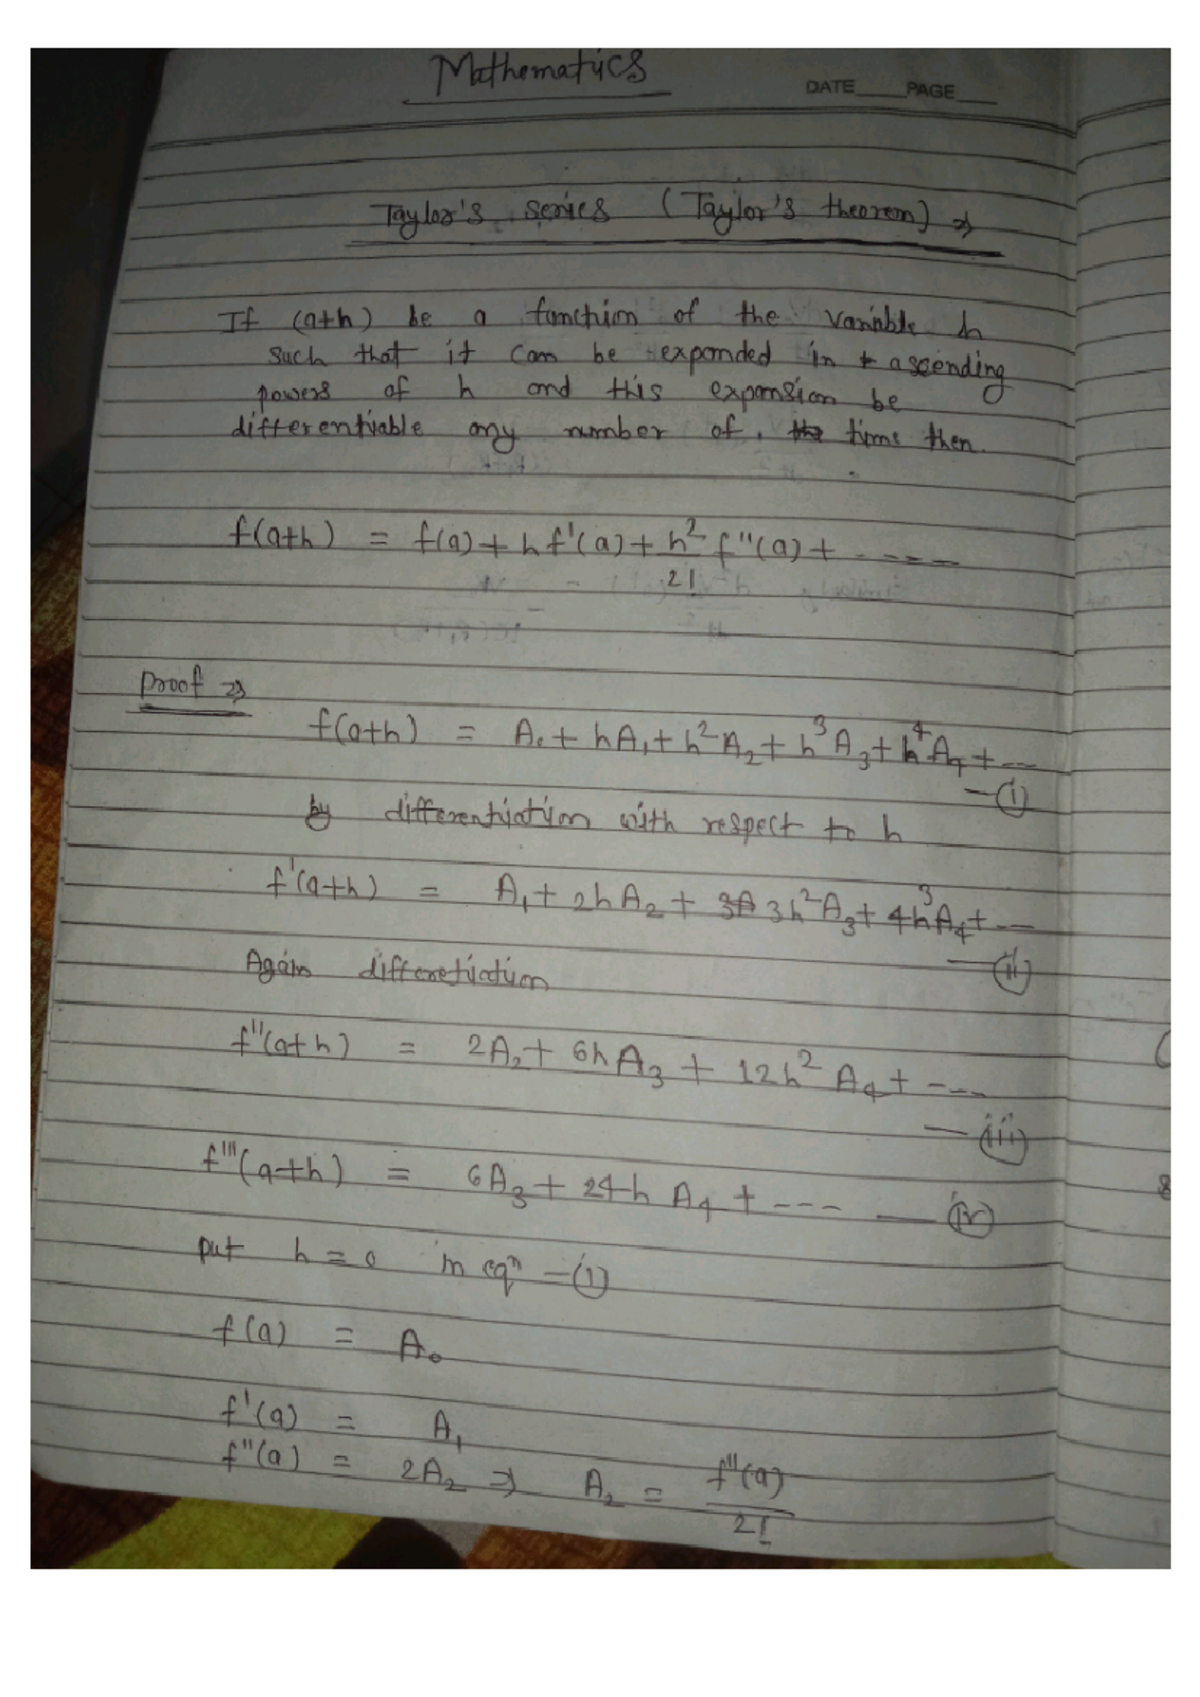 Mathematics
DATE____PAGE____
Taylor's series (Taylor's theorem) ⇒
If (a+h) be a function of the variable h
such that it can be expanded in ascending
powers of h and this expansion be
differentiable any number of time then.
f(a+h) = f(a) + h f'(a) + h²/2! f''(a) + -----
Proof ⇒
f(a+h) = A₀ + hA₁ + h²A₂ + h³A₃ + h⁴A₄ + ---
—(i)
by differentiation with respect to h
f'(a+h) = A₁ + 2hA₂ + 3h²A₃ + 4h³A₄ + ---
—(ii)
Again differetiation
f''(a+h) = 2A₂ + 6hA₃ + 12h² A₄ + ----
—(iii)
f'''(a+h) = 6A₃ + 24h A₄ + ---- —(iv)
put h = 0 in eqⁿ —(1)
f(a) = A₀
f'(a) = A₁
f''(a) = 2A₂ ⇒ A₂ = f''(a)/2!